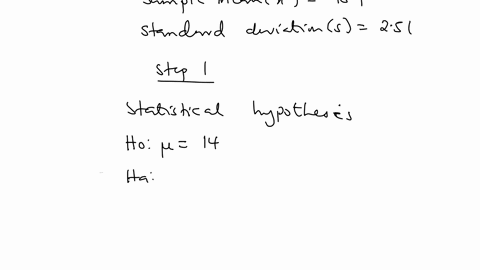 standard deviation(s) = 2.51
Step 1
Statistical hypothesis
Ho: μ = 14
Ha: